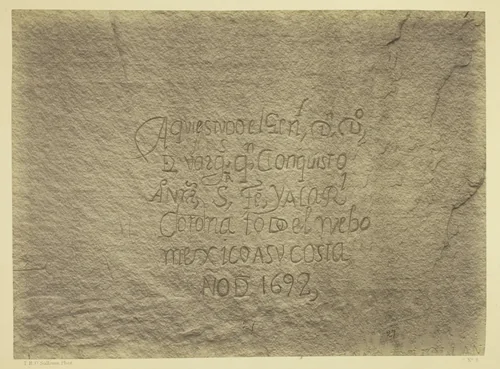 Aqui estuvo el Genl. Dn. Do.
D Vargs. qn. Conquisto
A Nra. S. Fe, Y A la Rl
Corona todo el nuebo
mexico A su costa
Año D 1692,